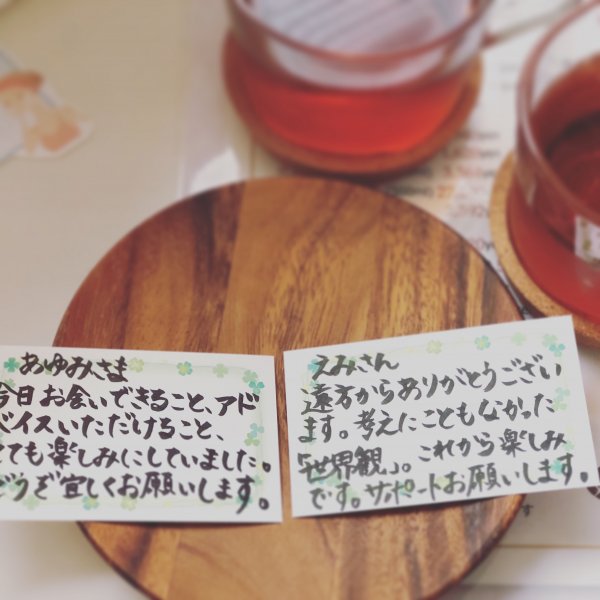 あゆみさま
今日お会いできること、アド
バイスいただけること、
とても楽しみにしていました。
どうぞ宜しくお願いします。
えみさん
遠方からありがとうござい
ます。考えたこともなかった
「世界観」。これから楽しみ
です。サポートお願いします。